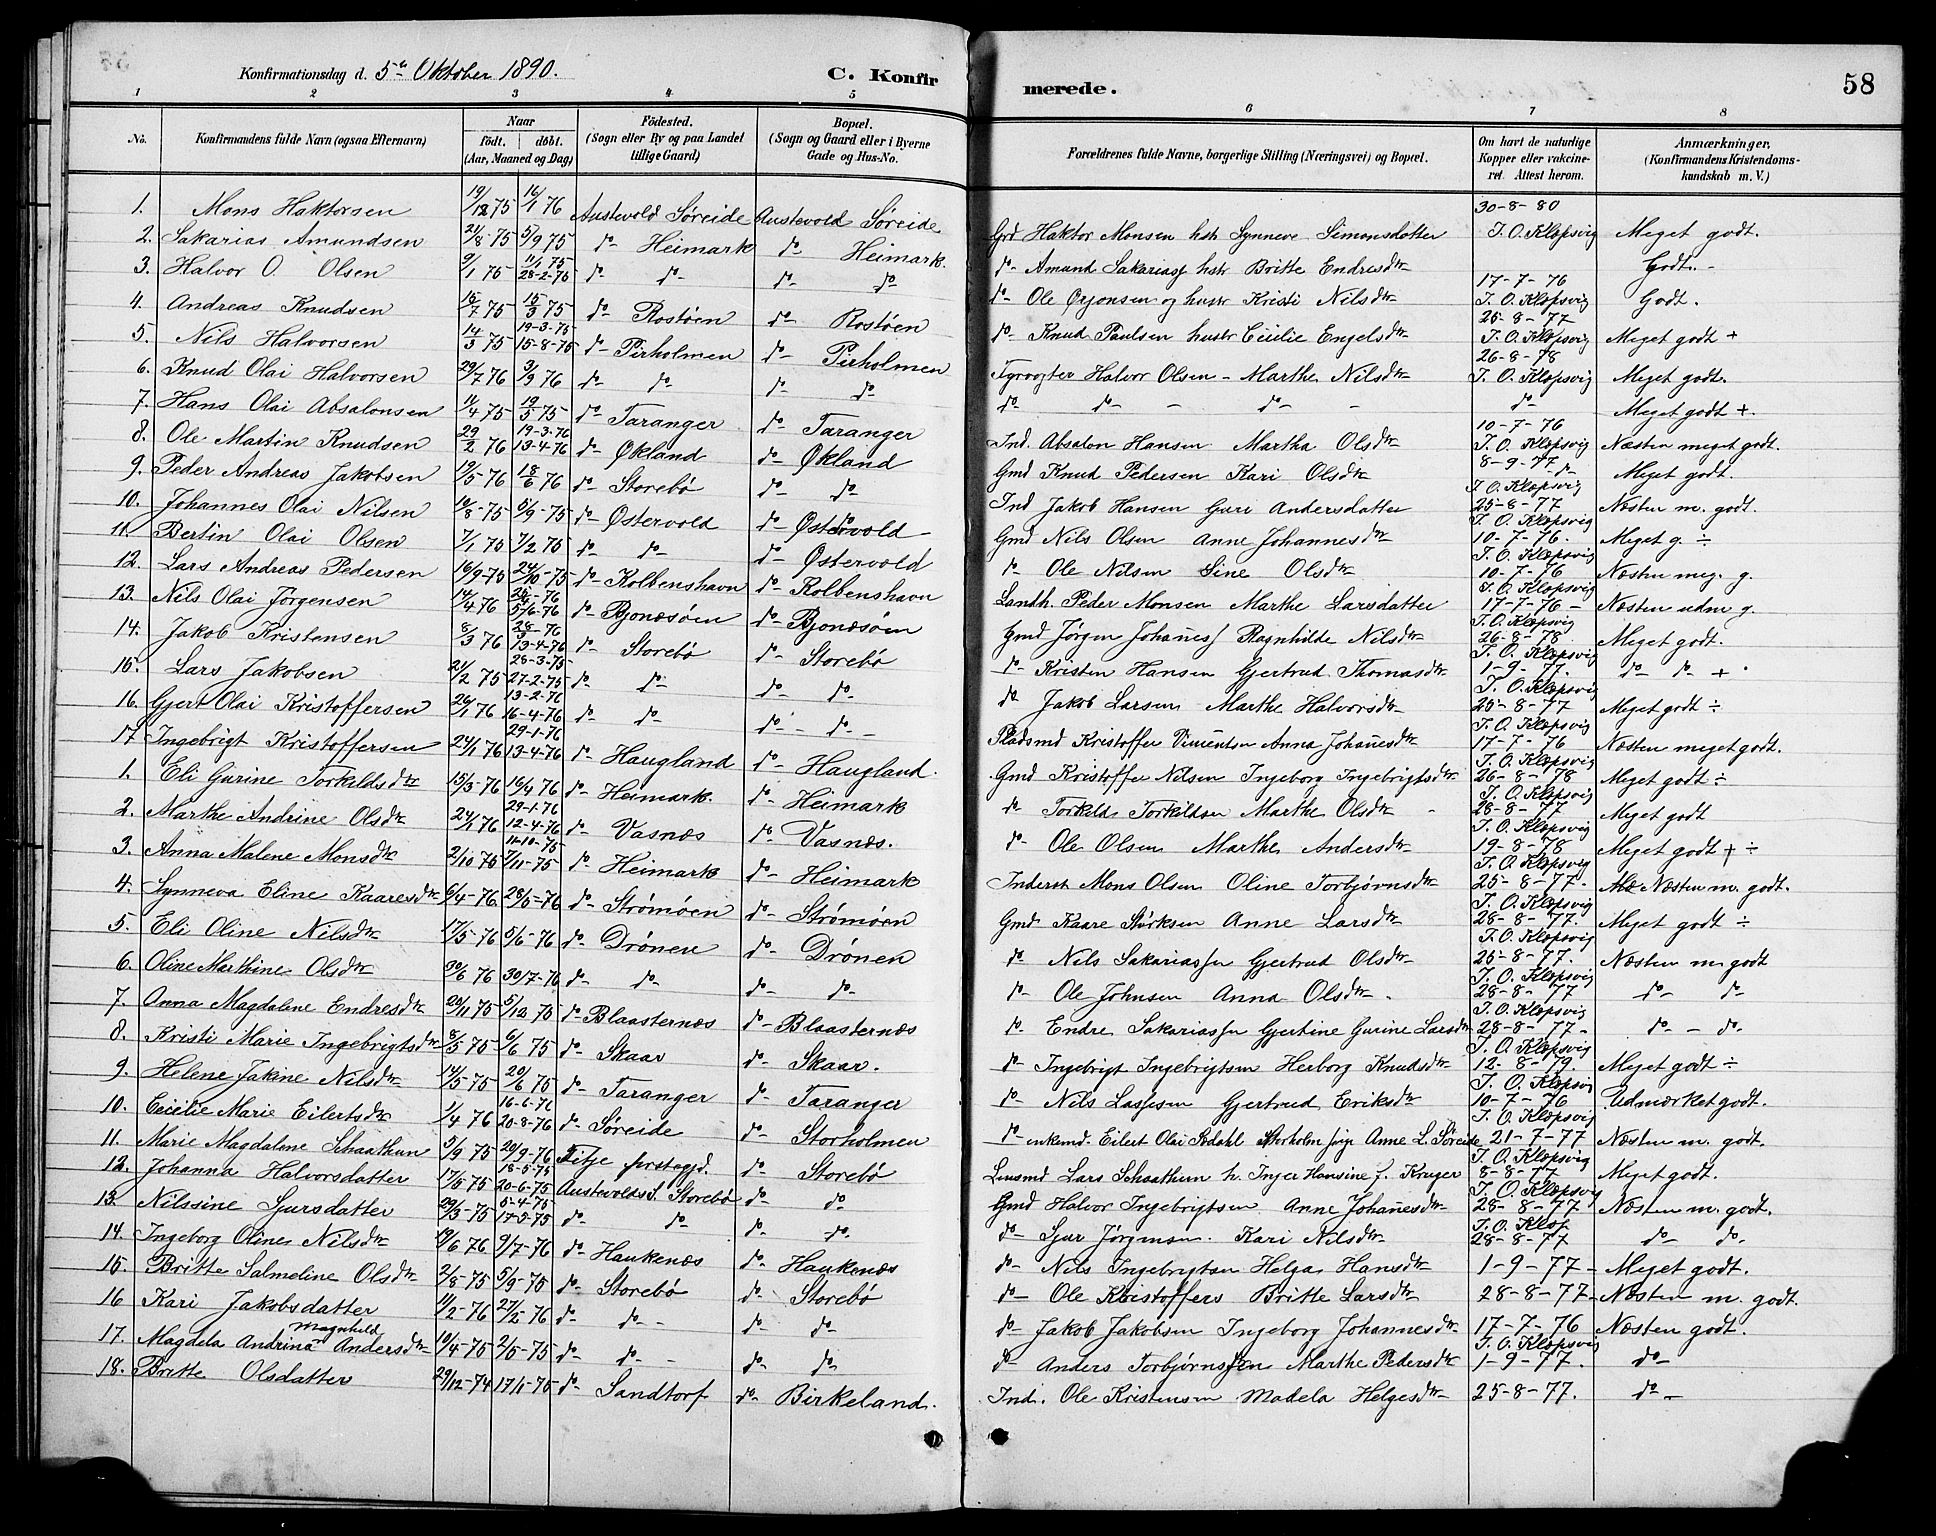 Konfirmationsdag d. 5te Oktober 1890. C. Konfir merede. 58
1 2 3 4 5 6 7 8
No. Konfirmandens fulde Navn (ogsaa Efternavn) Naar födt. döbt. (Aar, Maaned og Dag) Födested. (Sogn eller By og paa Landet tillige Gaard) Bopæl. (Sogn og Gaard eller i Byerne Gade og Hus-No. Forældrenes fulde Navne, borgerlige Stilling (Næringsvei) og Bopæl. Om havt de naturlige Kopper eller vakcineret. Attest herom. Anmærkninger, (Konfirmandens Kristendomskundskab m. V.)
1. Mons Haktorsen 19/12 75 16/1 76 Austevold Søreide Austevold Søreide Grd Haktor Monsen hstr Synneve Simonsdatter 30-8-80 T. O. Klepsvig Meget godt.
2. Sakarias Amundsen 21/8 75 5/9 75 do Heimark do Heimark. do Amund Sakariass hstr Britte Endresdtr Godt.
3. Halvor O. Olsen 9/1 75 11/1 75 28-2-75 do do do do do Ole Ørjonsen og hustr Kristi Nilsdtr 17-7-76 T. O. Klepsvig Godt.
4. Andreas Knudsen 15/7 75 15/3 75 do Rostøen do Rostøen do Knud Paulsen hustr Cecilie Engelsdtr 25-8-77 T. O. Klepsvig Meget godt +
5. Nils Halvorsen 14/3 75 19-3-75 15-8-75 do Pirholmen do Pirholmen Halvor Olsen - Marthe Nilsdtr 26-8-78 T. O. Klepsvig Meget godt.
6. Knud Olai Halvorsen 29/7 76 3/9 76 do do do do do do do do Meget godt +.
7. Hans Olai Absalonsen 11/4 75 19/5 75 do Taranger do Taranger Ind. Absalon Hansen Martha Olsdtr 10-7-76 T. O. Klepsvig Næsten meget godt.
8. Ole Martin Knudsen 29/2 76 19-3-76 13-4-76 do Økland do Økland Gmd Knud Pedersen Kari Olsdtr 8-9-77 do Meget godt.
9. Peder Andreas Jakobsen 19/5 76 18/6 76 do Storebø do do Ind Jakob Hansen Guri Andersdatter T. O. Klepsvig 25-8-77 Næsten m. godt.
10. Johannes Olai Nilsen 10/8-75 5/9-75 do Østervold do Østervold Gmd Nils Olsen Anne Johannesdtr T. O. Klepsvig 10-7-76. Meget g. ÷
11. Bertin Olai Olsen 7/1 75 7/2 75 do do do Østervold do Ole Nilsen Sine Olsdtr T. O. Klepsvig 10-7-76 Næsten meg. g.
12. Lars Andreas Pedersen 16/9-75 24/10-75 do Kolbenshavn do Kolbenshavn Landh. Peder Monsen Marthe Larsdatter T. O. Klepsvig 17-7-76 Næsten udm g.
13. Nils Olai Jørgensen 14/4 76 5/6-76 do Bjonæsøen do Bjonæsøen Gmd Jørgen Johaness Ragnhilde Nilsdtr T. O. Klepsvig 26-8-78. Meget godt.
14. Jakob Kristensen 8/3 76 28/3-76 13-4-76 do Storebø do Storebø do Kristen Hansen Gjertrud Thomasdtr T. O. Klepsvig 1-9-77. do do +
15. Lars Jakobsen 21/2 75 28-3-75 27-2-75 do do do do do Jakob Larsen Marthe Halvorsdtr T. O. Klepsvig 25-8-77 Meget godt ÷
16. Gjert Olai Kristoffersen 26/1 76 13-2-76 16-4-76 do do do do Pladsmd Kristoffer Vincentsen Anna Johanesdtr T. O. Klepsvig 17-7-76 Næsten meget godt.
17 Ingebrigt Kristoffersen 24/1 76 29-1-76 13-4-76 do Haugland do Haugland. Gmd Kristoffer Nilsen Ingeborg Ingebrigtsdtr T. O. Klepsvig 26-8-78 Meget godt ÷
1. Eli Gurine Torkildsdtr 15/3-76 16/4 76 do Heimark. do Heimark do Torkild Torkildsen Marthe Olsdtr T. O. Klepsvig 28-8-77 Meget godt
2. Marthe Andrine Olsdtr 24/1 76 29-1-76 12-4-76 do Vasnæs do Vasnæs. do Ole Olsen Marthe Andersdtr T. O. Klepsvig 19-8-78 Meget godt + ÷
3. Anna Malene Monsdtr 2/10 75 11-10-75 7/11-75 do Heimark do Heimark Inderst Mons Olsen Oline Torbjørnsdtr T. O. Klepsvig 25-8-77. Næsten m. godt.
4. Synneva Eline Kaaresdtr 6/4-76 28/5-76 do Strømøen do Strømøen Gmd Kaare Størksen Anne Larsdtr T. O. Klepsvig 28-8-77. Meget godt ÷
5. Eli Oline Nilsdtr 17/5-76 5/6-76 do Drönen do Drönen do Nils Sakariassen Gjertrud Olsdtr T. O. Klepsvig 25-8-77. Næsten m godt
6. Oline Marthine Olsdtr 30/6 76 30/7-76 do do do do do Ole Johnsen Anna Olsdtr. T. O. Klepsvig 28-8-77 do do
7. Anna Magdalene Endresdtr 20/11 75 5/12 75 do Blaasternæs do Blaasternæs do Endre Sakariassen Gjertine Gurine Larsdtr T. O. Klepsvig 28-8-77- do - do
8. Kristi Marie Ingebrigtsdtr 8/5 75 6/6 75 do Skaar do Skaar. do Ingebrigt Ingebrigtsen Herborg Knudsdtr T. O. Klepsvig 12-8-79. Meget godt ÷
9. Helene Jakine Nilsdtr 14/5-75 20/6 75 do Taranger do Taranger do Nils Lassesen Gjertrud Eriksdtr T. O. Klepsvig 10-7-76 Udmærket godt.
10. Cecilie Marie Eilertsdtr 1/4 76 16-6-76 20-8-76 do Søreide do Storholmen do enkemd. Eilert Olai Storholm Anne L. Søreide T. O. Klepsvig 21-7-77 Næsten m. godt.
11. Marie Magdalene Schaathun 3/9 75 20/9-76 Fitje prstegjd. do Storebø Lensmd Lars Schaathun h. Inger Hansine f. Krüger T. O. Klepsvig 8-8-77 Meget godt.
12. Johanna Halvorsdatter 17/5 75 18-5-75 20-6-75 Austevolds S. Storebø do do Gmd Halvor Ingebrigtsen Anne Johanesdtr T. O. Klepsvig 28-8-77 Næsten m. godt.
13. Nilssine Sjursdatter 29/3-75 5-4-75 17-5-75 do do do do. do Sjur Jørgensen Kari Nilsdtr T. O. Klep 28-8-77 do do
14. Ingeborg Oline Nilsdtr 19/6 76 9/7-76 do Haukenæs do Haukenæs do Nils Ingebrigtsen Helga Hansdtr 1-9-77- Meget godt.
15. Britte Salmeline Olsdtr 2/8-75 5/9-75 do Storebø do Storebø do Ole Kristoffers Britte Larsdtr 28-8-77- Næsten m. godt.
16 Kari Jakobsdatter 11/2-76 27/2-76 do do do do do Jakob Jakobsen Ingeborg Johannesdtr 17-7-76 Næsten godt.
17. Magdela Andrina Magnhild Andersdtr 10/4-75 2/5-75 do do do do do Anders Torbjørnssen Marthe Pedersdtr T. O. Klepsvig 1-9-77. do
18. Britte Olsdatter 29/12-74 17/1-75 do Sandtorf do Birkeland. Ind. Ole Kristensen Madela Helgesdtr 25-8-77. do